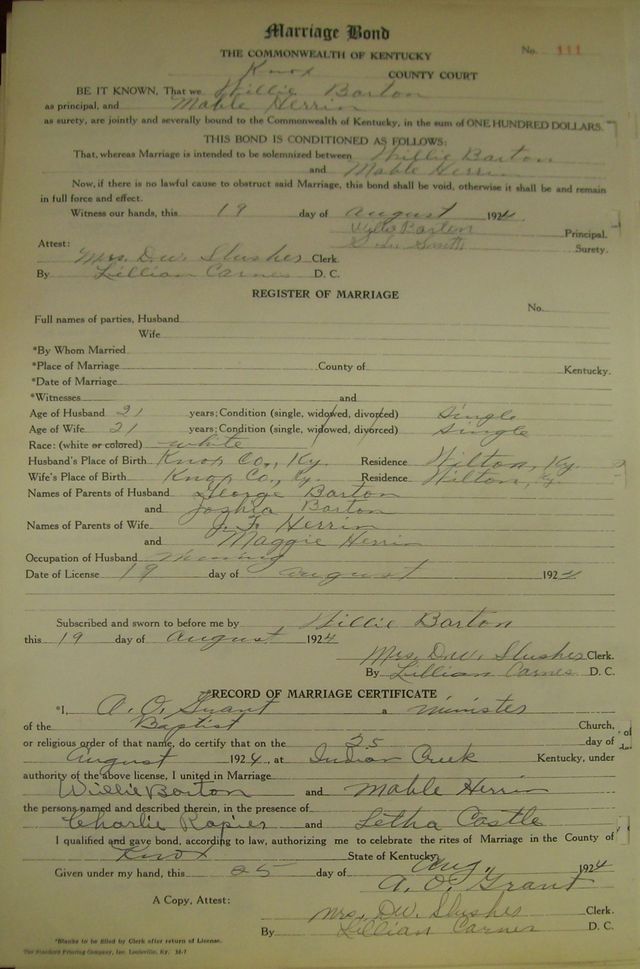 Marriage Bond
THE COMMONWEALTH OF KENTUCKY
No. 111
Knox COUNTY COURT
BE IT KNOWN, That we Willie Barton
as principal, and Mable Herrin
as surety, are jointly and severally bound to the Commonwealth of Kentucky, in the sum of ONE HUNDRED DOLLARS.
THIS BOND IS CONDITIONED AS FOLLOWS:
That, whereas Marriage is intended to be solemnized between Willie Barton
and Mable Herrin
Now, if there is no lawful cause to obstruct said Marriage, this bond shall be void, otherwise it shall be and remain
in full force and effect.
Witness our hands, this 19 day of August 1924
Willie Barton Principal.
Smith Surety.
Attest:
Mrs. D.W. Slusher Clerk.
By Lillian Carnes D. C.
REGISTER OF MARRIAGE
No.
Full names of parties, Husband
Wife
*By Whom Married
*Place of Marriage County of Kentucky.
*Date of Marriage
*Witnesses and
Age of Husband 21 years; Condition (single, widowed, divorced) Single
Age of Wife 21 years; Condition (single, widowed, divorced) Single
Race: (white or colored) white
Husband's Place of Birth Knox Co., Ky. Residence Wilton, Ky.
Wife's Place of Birth Knox Co., Ky. Residence Wilton, Ky.
Names of Parents of Husband George Barton
and Joshia Barton
Names of Parents of Wife J. F. Herrin
and Maggie Herrin
Occupation of Husband Mining
Date of License 19 day of August 1924
Subscribed and sworn to before me by Willie Barton
this 19 day of August 1924
Mrs. D.W. Slusher Clerk.
By Lillian Carnes D. C.
RECORD OF MARRIAGE CERTIFICATE
*I, A. O. Grant a Minister
of the Baptist Church,
or religious order of that name, do certify that on the 25 day of
August 1924, at Indian Creek Kentucky, under
authority of the above license, I united in Marriage
Willie Barton and Mable Herrin
the persons named and described therein, in the presence of
Charlie Rapier and Letha Castle
I qualified and gave bond, according to law, authorizing me to celebrate the rites of Marriage in the County of
Knox State of Kentucky.
Given under my hand, this 25 day of Aug. 1924
A. O. Grant
A Copy, Attest:
Mrs. D.W. Slusher Clerk.
By Lillian Carnes D. C.
*Blanks to be filled by Clerk after return of License.
The Standard Printing Company, Inc. Louisville, Ky.